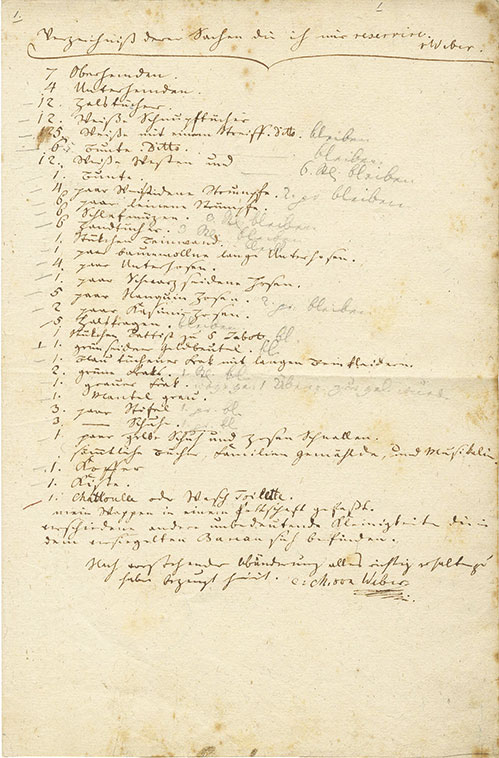 1.
Verzeichniß derer Sachen die ich mir reservire.
vWeber.
7 Oberhemden.
4 Unterhemden.
12. Halstücher.
12. Weiße Schnupftücher
Weiße mit einem Streiff. Ditto. bleiben
6 Bunte Ditto. bleiben.
12. Weiße Westen und 6. bleiben
1. Bunte.
4 paar Weißseidene Strümpfe. 2. pr bleiben.
6 paar leinene Strümpfe.
6 Schlafmützen. bleiben
6 Handtücher. bleiben
1. Stükchen Leinwand. bleibt
1 paar baumwollne lange Unterhosen.
4. paar Unterhosen.
1. paar Schwarzseidene Hosen.
5 paar Nanquin Hosen. 2. pr. bleiben
2 paar Kasimir Hosen.
5. Halskragen. bleiben
1 Stükchen Battist zu 5 Jabots. bl
1. grünseidner Geldbeutel. bl.
1. blau tuchener Frak mit langen Beinkleidern.
2. grüne Frak. 1. bl.
1. grauer Frak.
1. Mantel grau.
3. paar Stiefel 1. pr. bl
3. — Schuhe. bl
1. paar gelbe Schuh und Hosen Schnallen.
Sämtliche Bücher, Familien gemählde, und Musikalien
1. Koffer
1. Kiste.
1. Chattoulle oder Wasch Toilette.
mein Wappen in einem Pettschaft gefaßt.
verschiedene andere unbedeutende Kleinigkeiten die in
dem versiegelten Zimmer sich befinden.
Nach vorstehender Abänderung alles richtig erhalten zu
haben bezeugt hiemit. C: M: von Weber